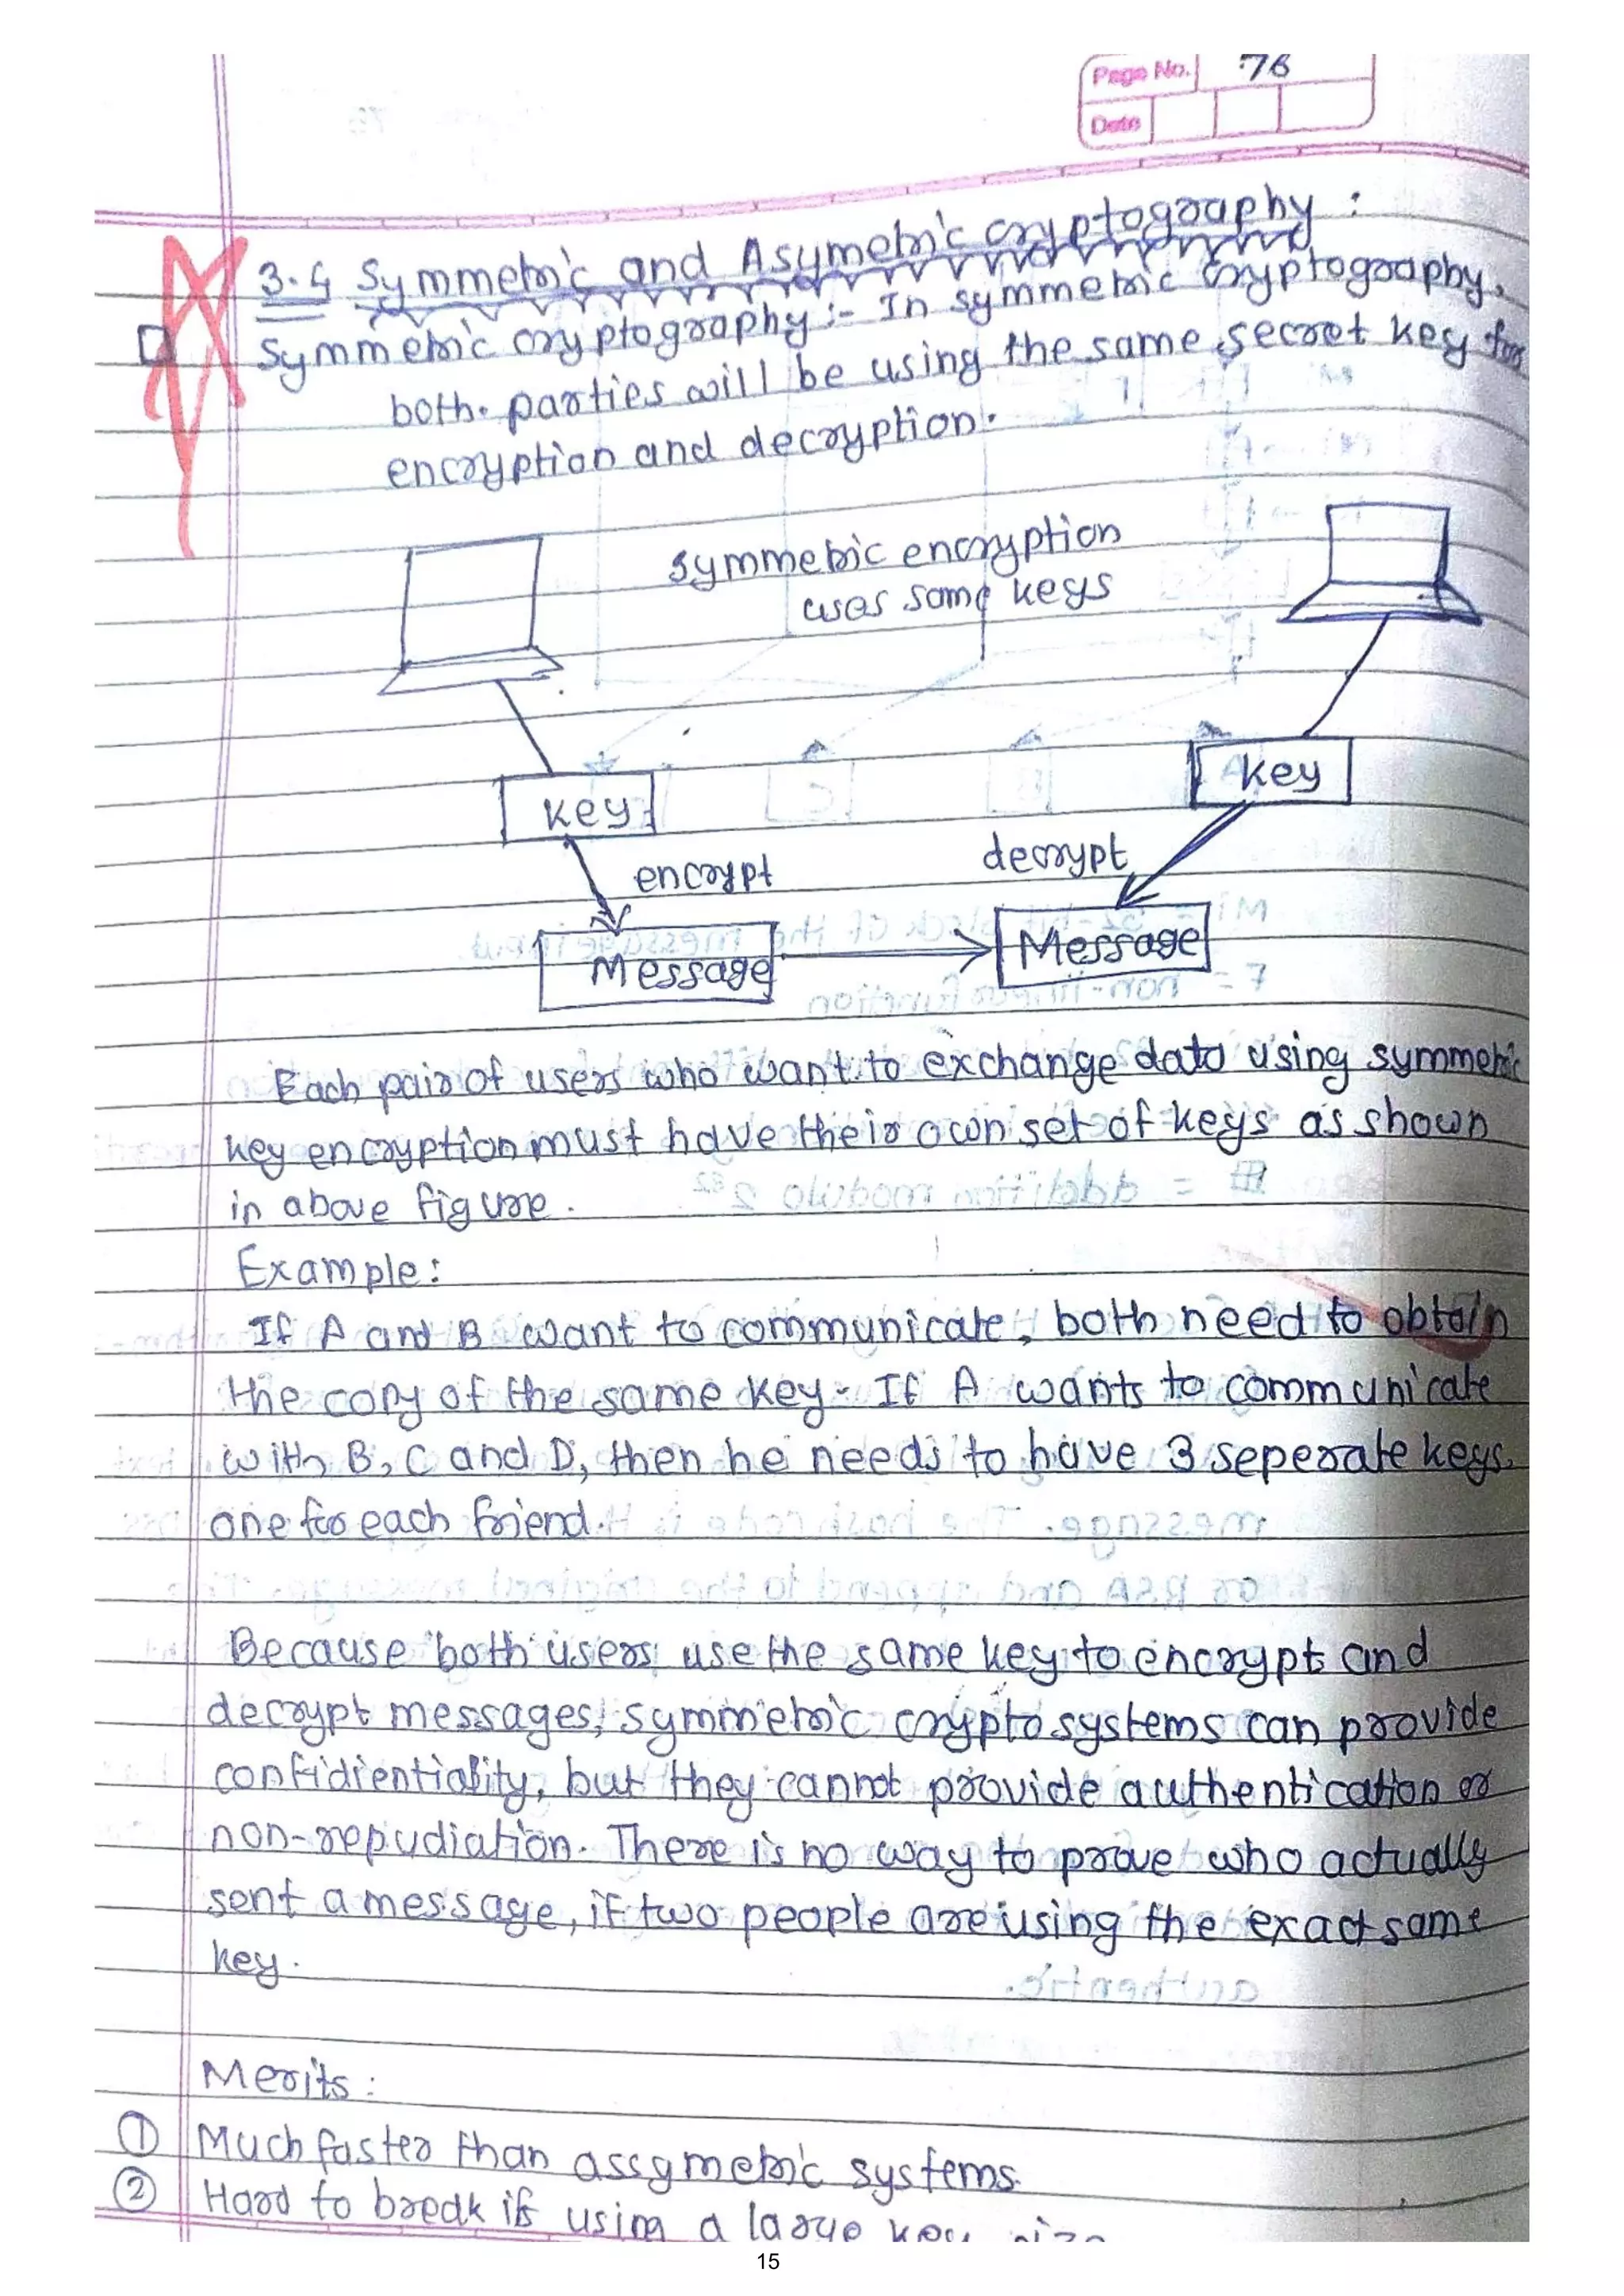 Page No. 76
Date
3.4 Symmetric and Asymetric cryptography :
Symmetric cryptography :- In symmetric cryptography,
both parties will be using the same secret key for
encryption and decryption.
symmetric encryption
uses same keys
key
key
encrypt
decrypt
Message
Message
Each pair of users who want to exchange data using symmetric
key encryption must have their own set of keys as shown
in above figure.
Example:
If A and B want to communicate, both need to obtain
the copy of the same key. If A wants to communicate
with B, C and D, then he needs to have 3 seperate keys.
one for each friend.
Because both users use the same key to encrypt and
decrypt messages, symmetric cryptosystems can provide
confidientiality, but they cannot provide authentication or
non-repudiation. There is no way to prove who actually
sent a message, if two people are using the exact same
key.
Merits :
① Much faster than assymetric systems.
② Hard to break if using a large key size
15